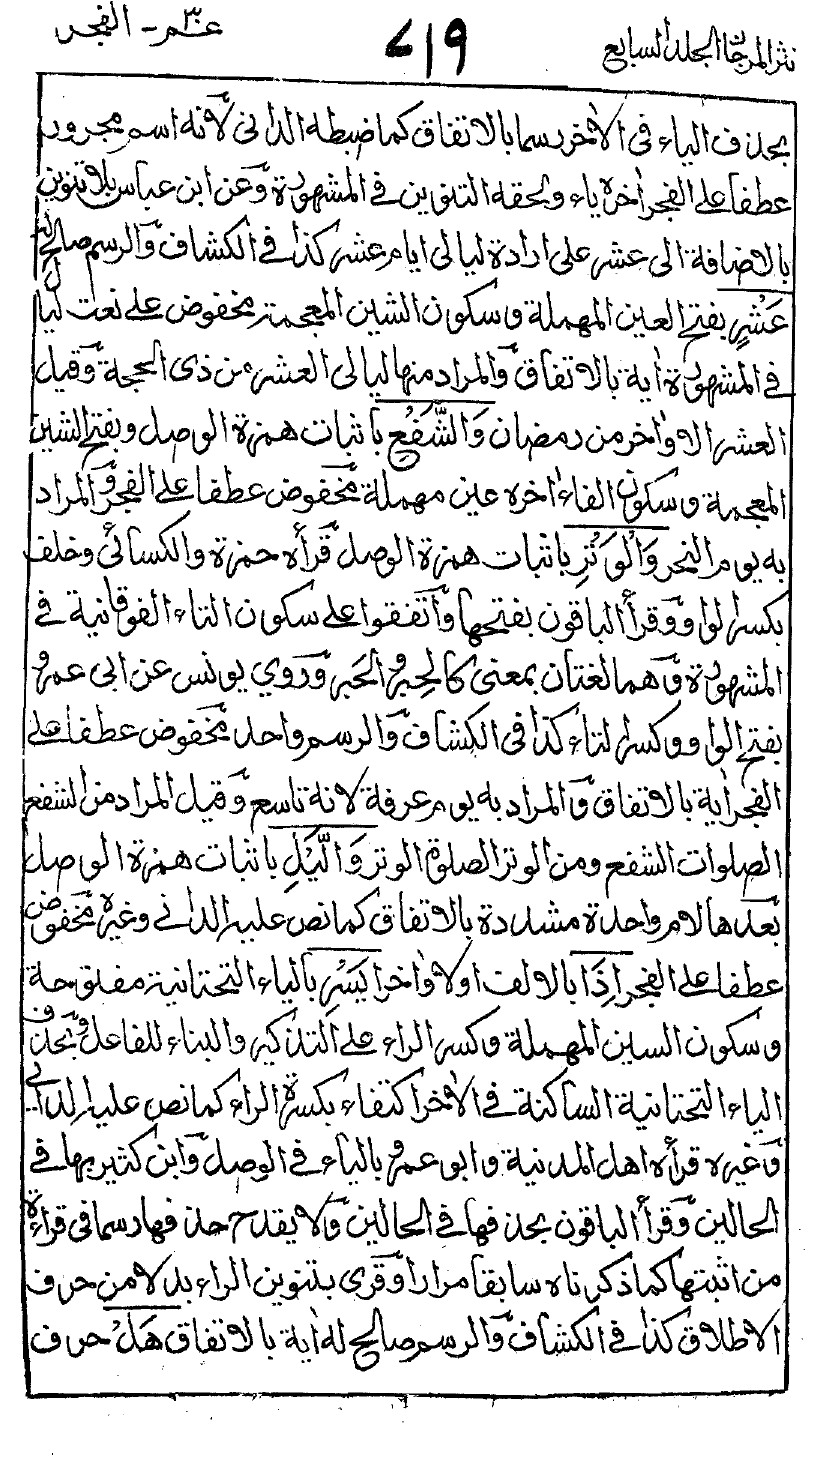 نثر المرجان الجلد السابع ٧١٩ عم ٣٠ - الفجر
بحذف الياء فى الأخر رسما بالاتفاق كما ضبطه الدانى لأنه اسم مجرور
عطفا على الفجر اخره ياء ويلحقه التنوين في المشهورة وعن ابن عباس بلا تنوين
بالاضافة الى عشر على ارادة ليالى ايام عشر كذا في الكشاف والرسم صالح له
عَشْرٍ بفتح العين المهملة وسكون الشين المعجمة مخفوض على نعت ليال
في المشهورة أية بالاتفاق والمراد منها ليالى العشر من ذى الحجة وقيل
العشر الاواخر من رمضان وَالشَّفْعِ باثبات همزة الوصل وبفتح الشين
المعجمة وسكون الفاء اخره عين مهملة مخفوض عطفا على الفجر والمراد
به يوم النحر وَالْوَتْرِ باثبات همزة الوصل قرأه حمزة والكسائي وخلف
بكسر الواو وقرأ الباقون بفتحها واتفقوا على سكون التاء الفوقانية في
المشهورة وهما لغتان بمعنى كالحِبر والحَبر وروي يونس عن ابى عمرو
بفتح الواو وكسر التاء كذا فى الكشاف والرسم واحد مخفوض عطفا على
الفجر أية بالاتفاق والمراد به يوم عرفة لانه تاسع وقيل المراد من الشفع
الصلوات الشفع ومن الوتر الصلوة الوتر وَالَّيْلِ باثبات همزة الوصل
بعدها لام واحدة مشددة بالاتفاق كما نص عليه الدانے وغيره مخفوض
عطفا على الفجر اِذَا بالالف اولا واخرا يَسْرِ بالياء التحتانية مفتوحة
وسكون السين المهملة وكسر الراء على التذكير والبناء للفاعل وبحذف
الياء التحتانية الساكنة في الأخر اكتفاء بكسرة الراء كما نص عليه الدانے
وغيره قرأه اهل المدنية وابو عمرو بالياء في الوصل وابن كثير بها في
الحالين وقرأ الباقون بحذفها في الحالين ولا يقدح حذفها رسما فى قراءة
من اثبتها كما ذكرناه سابقا مرارا وقرى بتنوين الراء بدلا من حرف
الاطلاق كذا في الكشاف والرسم صالح له أية بالاتفاق هَلْ حرف